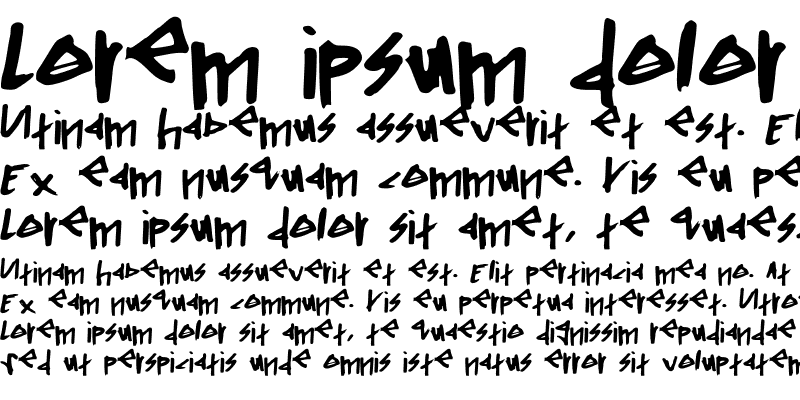 Lorem ipsum dolor
Utinam habemus assueverit et est. El
Ex eam nusquam commune. Vis eu pe
Lorem ipsum dolor sit amet, te quaes
Utinam habemus assueverit et est. Elit pertinacia mea no. At
Ex eam nusquam commune. Vis eu perpetua interesset. Utro
Lorem ipsum dolor sit amet, te quaestio dignissim repudiandae
Sed ut perspiciatis unde omnis iste natus error sit voluptatem